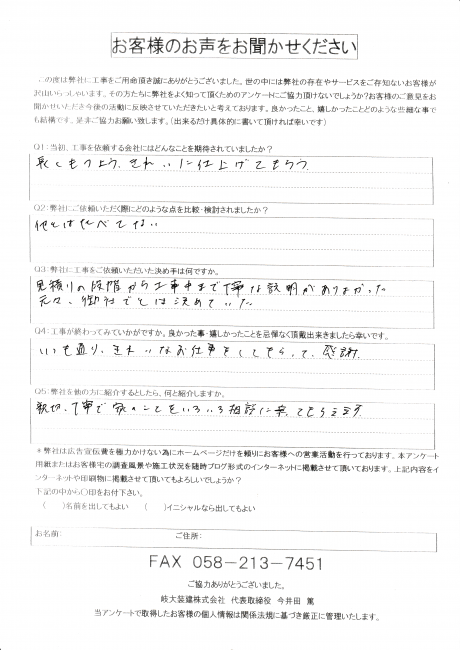 お客様のお声をお聞かせください
この度は弊社に工事をご用命頂き誠にありがとうございました。世の中には弊社の存在やサービスをご存知ないお客様が
沢山いらっしゃいます。その方たちに弊社をよく知って頂くためのアンケートにご協力頂けないでしょうか?お客様のご意見をお
聞かせいただき今後の活動に反映させていただきたいと考えております。良かったこと、嬉しかったことどのような些細な事で
も結構です。是非ご協力お願い致します。(出来るだけ具体的に書いて頂ければ幸いです)
Q1:当初、工事を依頼する会社にはどんなことを期待されていましたか?
長くもつよう、きれいに仕上げてもらう。
Q2:弊社にご依頼いただく際にどのような点を比較・検討されましたか?
他とはくらべてない
Q3:弊社に工事をご依頼いただいた決め手は何ですか。
見積りの段階から工事中まで丁寧な説明がありよかった
元々、御社でとは決めていた
Q4:工事が終わってみていかがですか。良かった事・嬉しかったことを忌憚なく頂戴出来ましたら幸いです。
いつも通り、きれいなお仕事をしてもらって、感謝。
Q5:弊社を他の方に紹介するとしたら、何と紹介しますか。
親切、丁寧で家のことをいろいろ相談に乗ってもらえます。
*弊社は広告宣伝費を極力かけない為にホームページだけを頼りにお客様への営業活動を行っております。本アンケート
用紙またはお客様宅の調査風景や施工状況を随時ブログ形式のインターネットに掲載させて頂いております。上記内容をイ
ンターネットや印刷物に掲載させて頂いてもよろしいでしょうか?
下記の中から○印をお付下さい。
(　)名前を出してもよい　(　)イニシャルなら出してもよい
お名前:　ご住所:
FAX 058-213-7451
ご協力ありがとうございました。
岐大装建株式会社 代表取締役 今井田 篤
当アンケートで取得したお客様の個人情報は関係法規に基づき厳正に管理いたします。